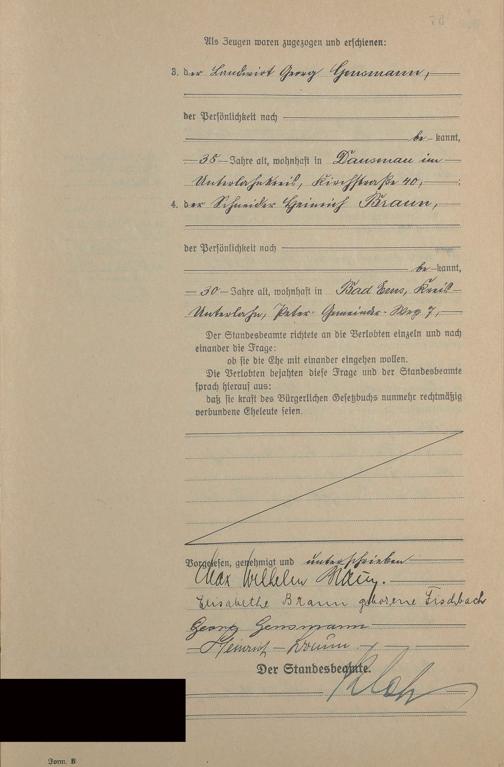 Als Zeugen waren zugezogen und erschienen:
3. der Landwirt Georg Gensmann,
der Persönlichkeit nach
be kannt,
38 Jahre alt, wohnhaft in Dausenau im
Unterlahnkreis, Kirchstraße 40,
4. der Schneider Heinrich Braun,
der Persönlichkeit nach
be kannt,
30 Jahre alt, wohnhaft in Bad Ems, Kreis
Unterlahn, Peter-Gemeinder-Weg 7,
Der Standesbeamte richtete an die Verlobten einzeln und nach
einander die Frage:
ob sie die Ehe mit einander eingehen wollen.
Die Verlobten bejahten diese Frage und der Standesbeamte
sprach hierauf aus:
daß sie kraft des Bürgerlichen Gesetzbuchs nunmehr rechtmäßig
verbundene Eheleute seien.
Vorgelesen, genehmigt und unterschrieben
Max Wilhelm Braun.
Elisabethe Braun geborene Fischbach
Georg Gensmann
Heinrich Braun
Der Standesbeamte.
Form. B